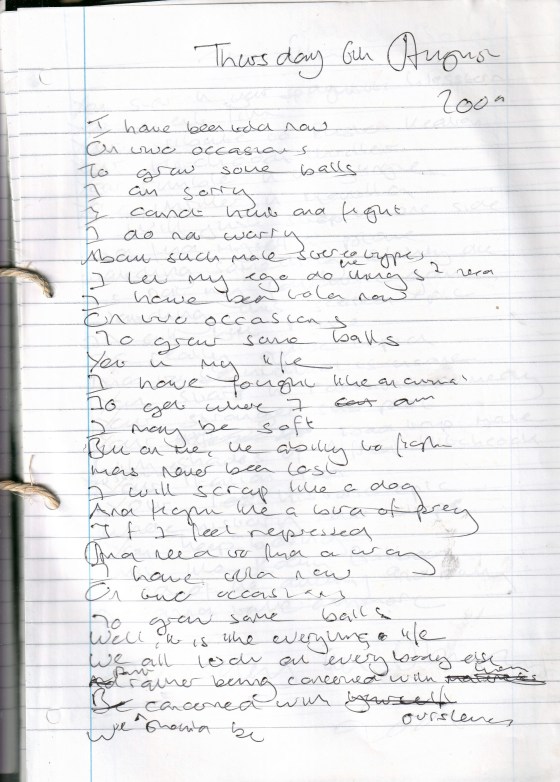 Thursday 6th August
2009
I have been told now
On two occasions
To grow some balls
I am sorry
I cannot hunt and fight
I do not worry
About such male stereotypes
I let my ego do the things I need
I have been told now
On two occasions
To grow some balls
Yet in my life
I have fought like an animal
To get where I am
I may be soft
But on me, the ability to fight
Has never been lost
I will scrap like a dog
And fight like a bird of prey
If I feel repressed
And need to find a way
I have told now
On two occasions
To grow some balls
Well, it is like everything in life
We all look on everybody else
rather being concerned with
Be concerned with ourselves
We should be